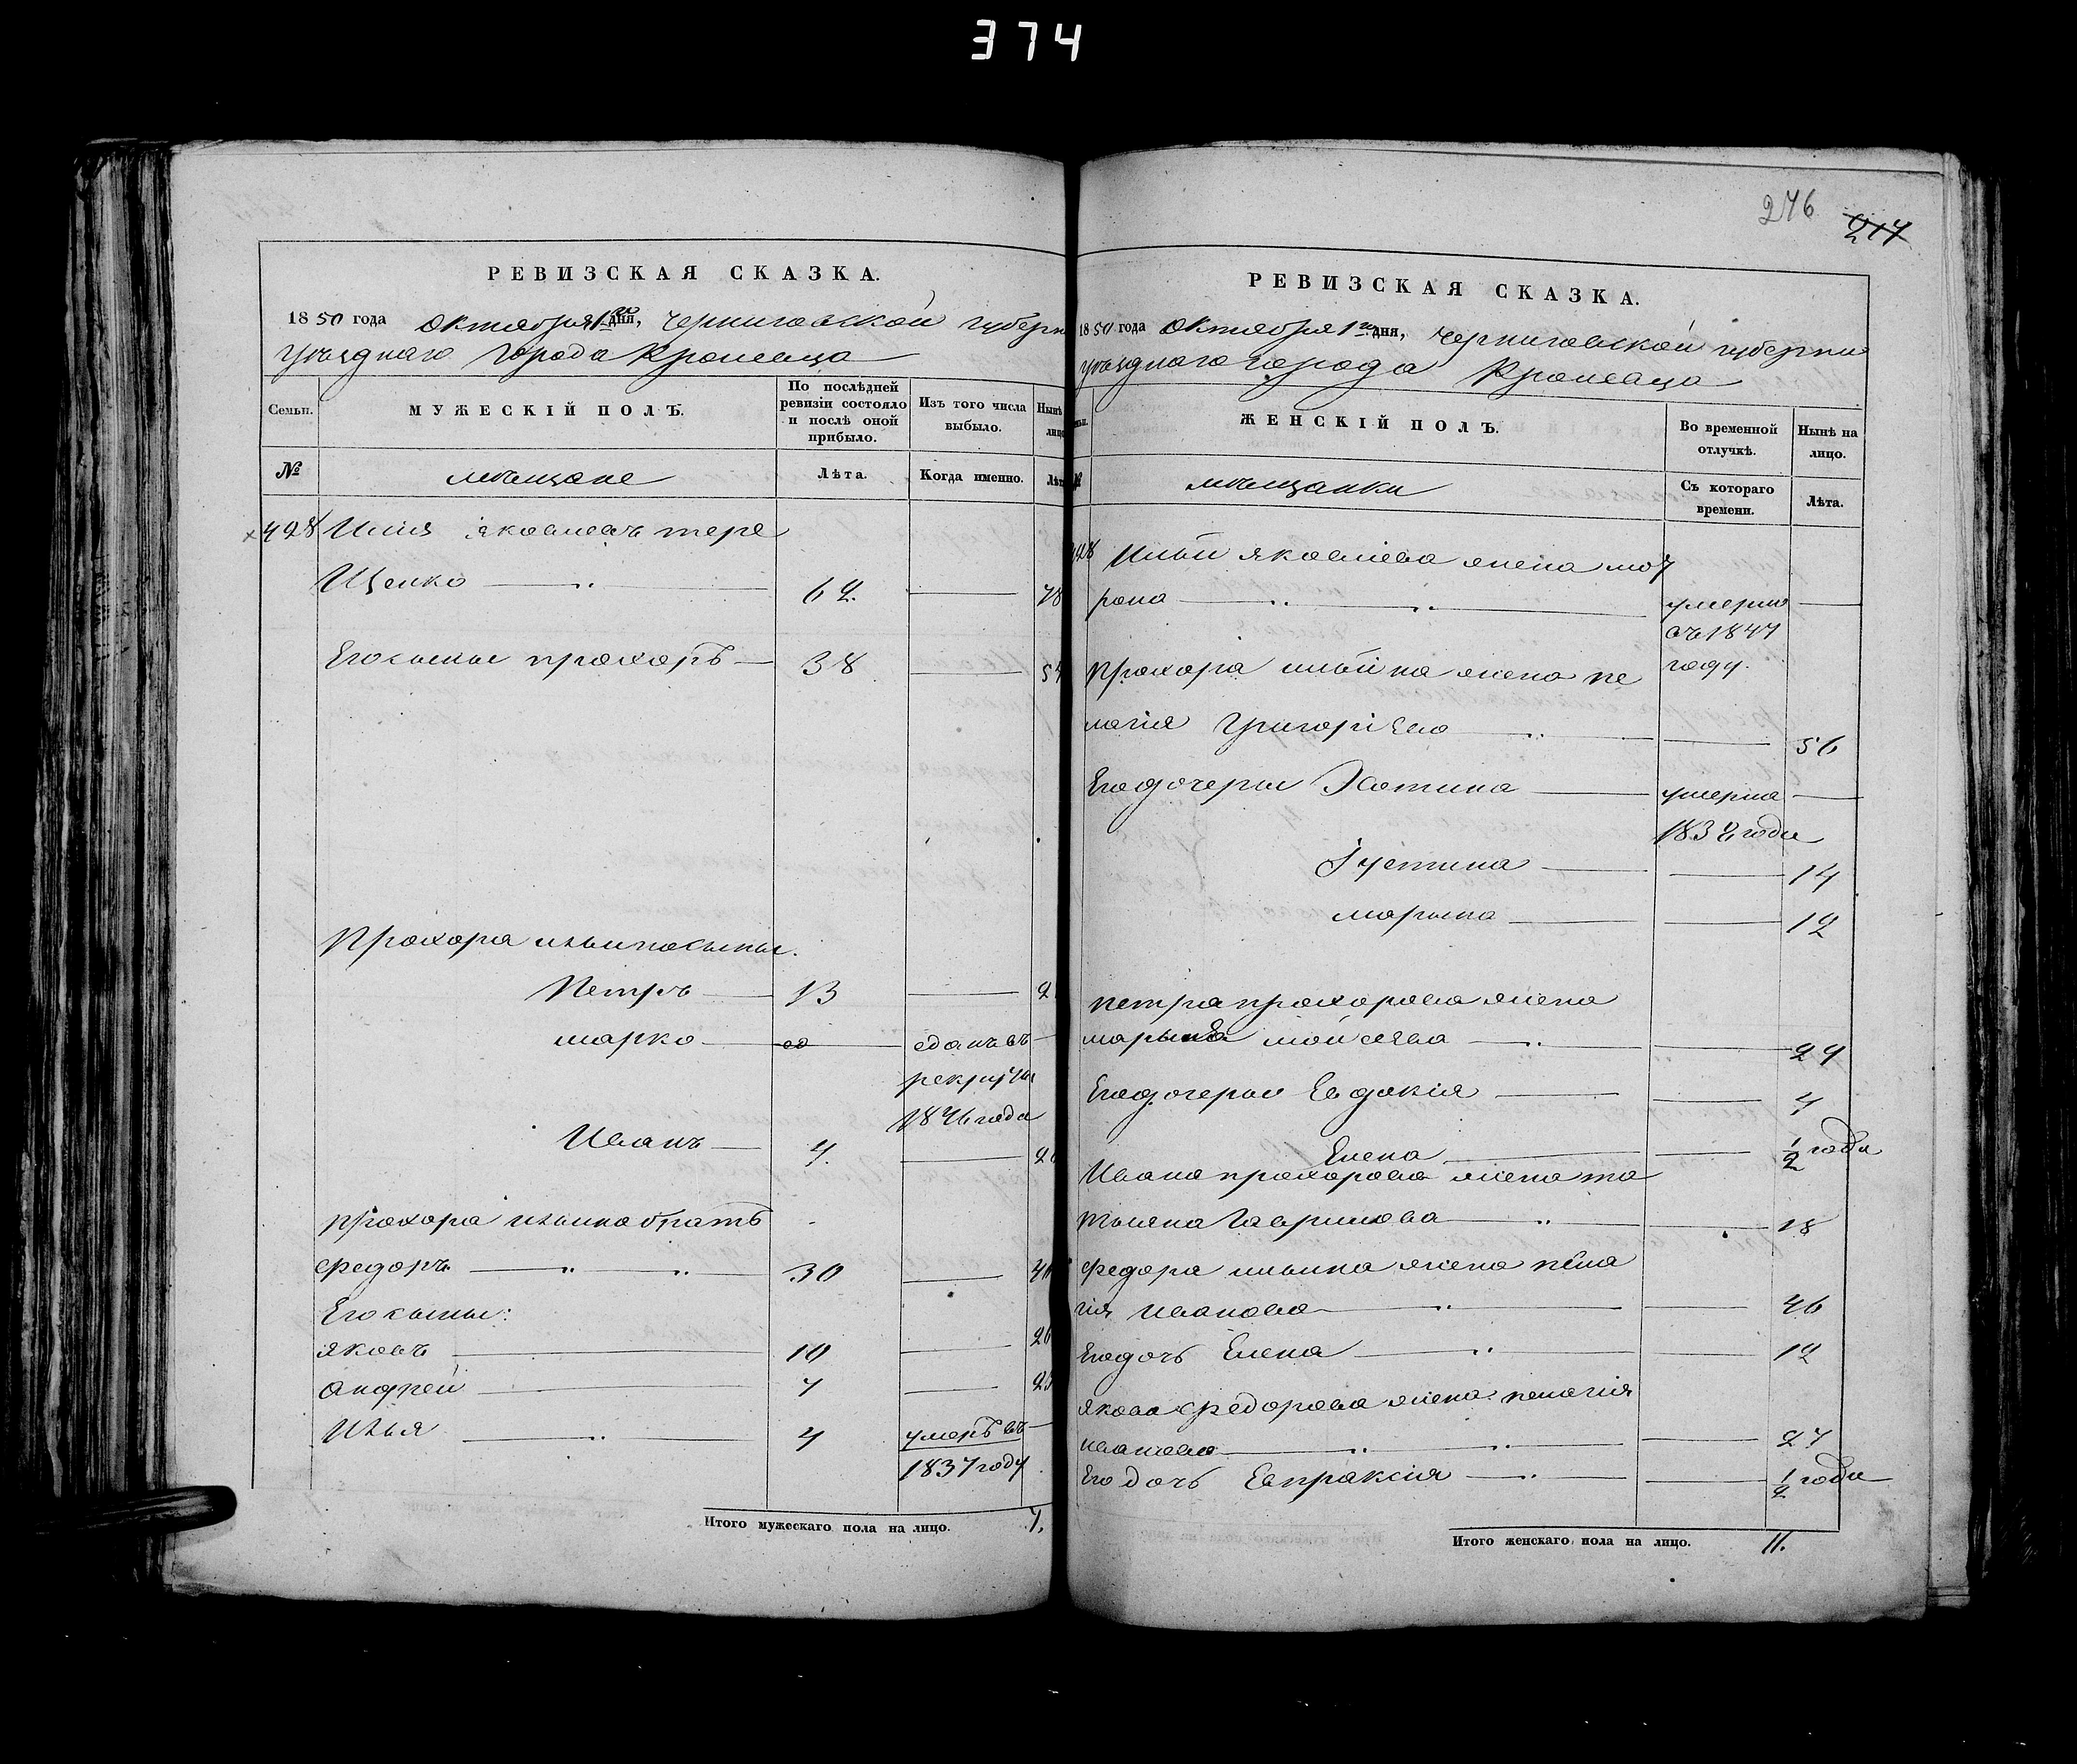 374
РЕВИЗСКАЯ СКАЗКА.
1850 года Октября 1го дня, Черниговской губерн
Уѣзднаго города Кролевца
Семьи.
МУЖЕСКІЙ ПОЛЪ.
По послѣдней ревизіи состояло и послѣ оной прибыло.
Изъ того числа выбыло.
Нынѣ лицо
№
мѣщане
Лѣта.
Когда именно.
Лѣт
428 Илія Яковлевъ тере
Щенко 62 78
Его сыны прохоръ 38 54
Прохора ильина сыны.
Петръ 13 2
марко сданъ въ
рекруты
1846 года
Иванъ 4. 20
прохора ильина братъ
федоръ 30 46
Его сыны:
яковъ 10 26
андрей 7 23
Илья 4 умеръ въ
1837 году
Итого мужескаго пола на лицо. 7.
246
217
РЕВИЗСКАЯ СКАЗКА.
1850 года Октября 1го дня, Черниговской губерни
уѣзднаго города Кролевца
ЖЕНСКІЙ ПОЛЪ.
Во временной отлучкѣ.
Нынѣ на лицо.
№
мѣщанки
Съ котораго времени.
Лѣта.
428 Ильи яковлева жена мот
рона умерла
въ 1847
году.
Прохора ильина жена пе
лагія Григоріева 56
Его дочеры Хотина умерла
1832 года
Іустина 14
марина 12
петра прохорова жена
марьяна мойсеева 29
Его дочеры Евдокія 4
Елена 1/2 года
Ивана прохорова жена та
тьяна Гаврилова 18
федора ильина жена пела
гія иванова 46
Его дочъ Елена 12
якова федорова жена пелагія
иванова 27
Его дочъ Евпраксія 1/2 года
Итого женскаго пола на лицо. 11.